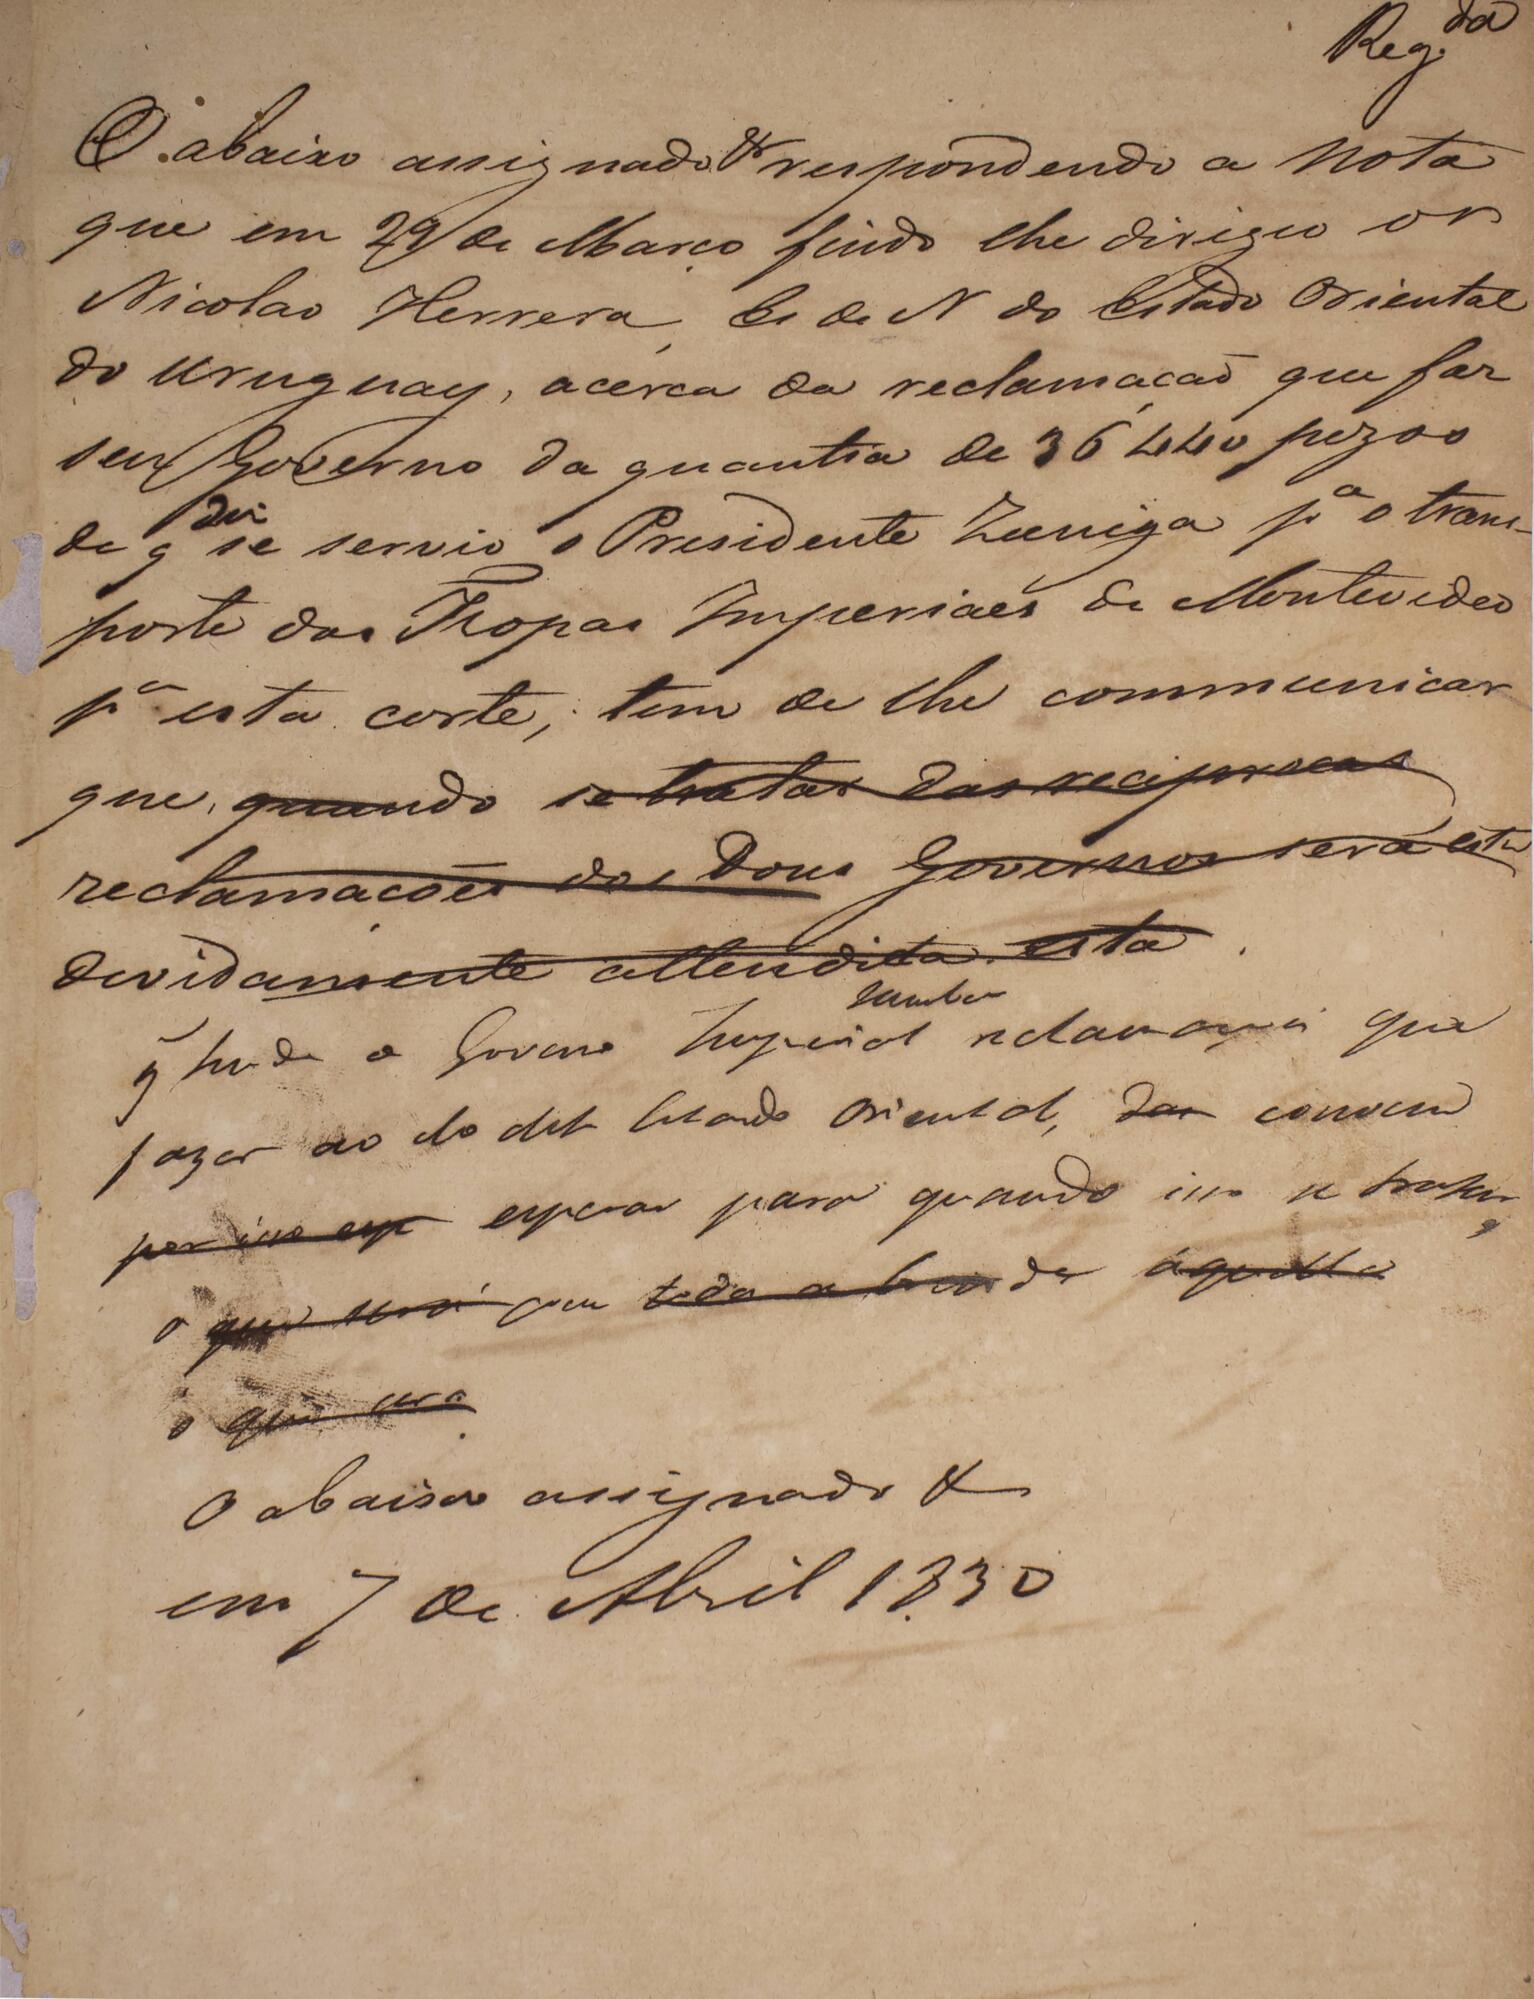 Reg.da
O abaixo assignado & respondendo a Nota
que em 29 de Março findo lhe dirigio o Sr
Nicolao Herrera, E. de N do Estado Oriental
do Uruguay, acerca da reclamação que faz
seu Governo da quantia de 36440 pezos
diz
de q se servio o Presidente Zuniga pa o trans-
porte das Tropas Imperiaes de Montevideo
pa esta corte, tem de lhe communicar
que, quando se tratar das reciprocas
reclamações dos Dous Governos será esta
devidamente attendida esta
tambem
q̃ tendo o Governo Imperial reclamações que
fazer ao do dito Estado Oriental, convem
por isso esp esperar para quando isso se tratar,
o que será com toda a da aquella
o que sera
O abaixo assignado &
em 7 de Abril 1830